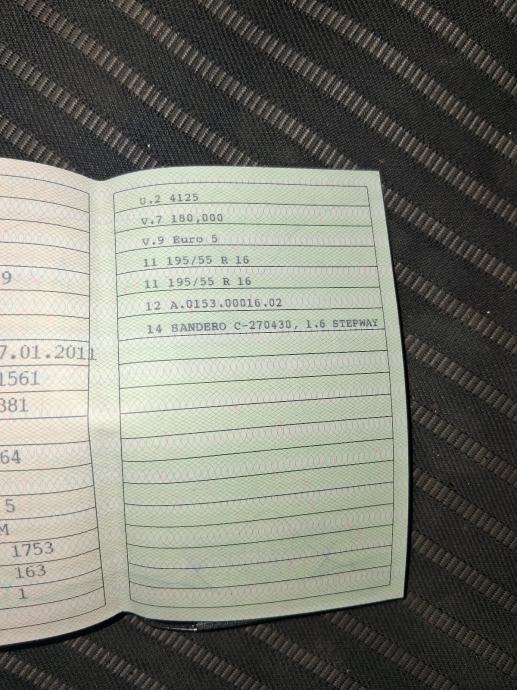 9
7.01.2011
1561
381
64
5
M
1753
163
1
U.2 4125
V.7 180,000
V.9 Euro 5
11 195/55 R 16
11 195/55 R 16
12 A.0153.00016.02
14 SANDERO C-270430, 1.6 STEPWAY